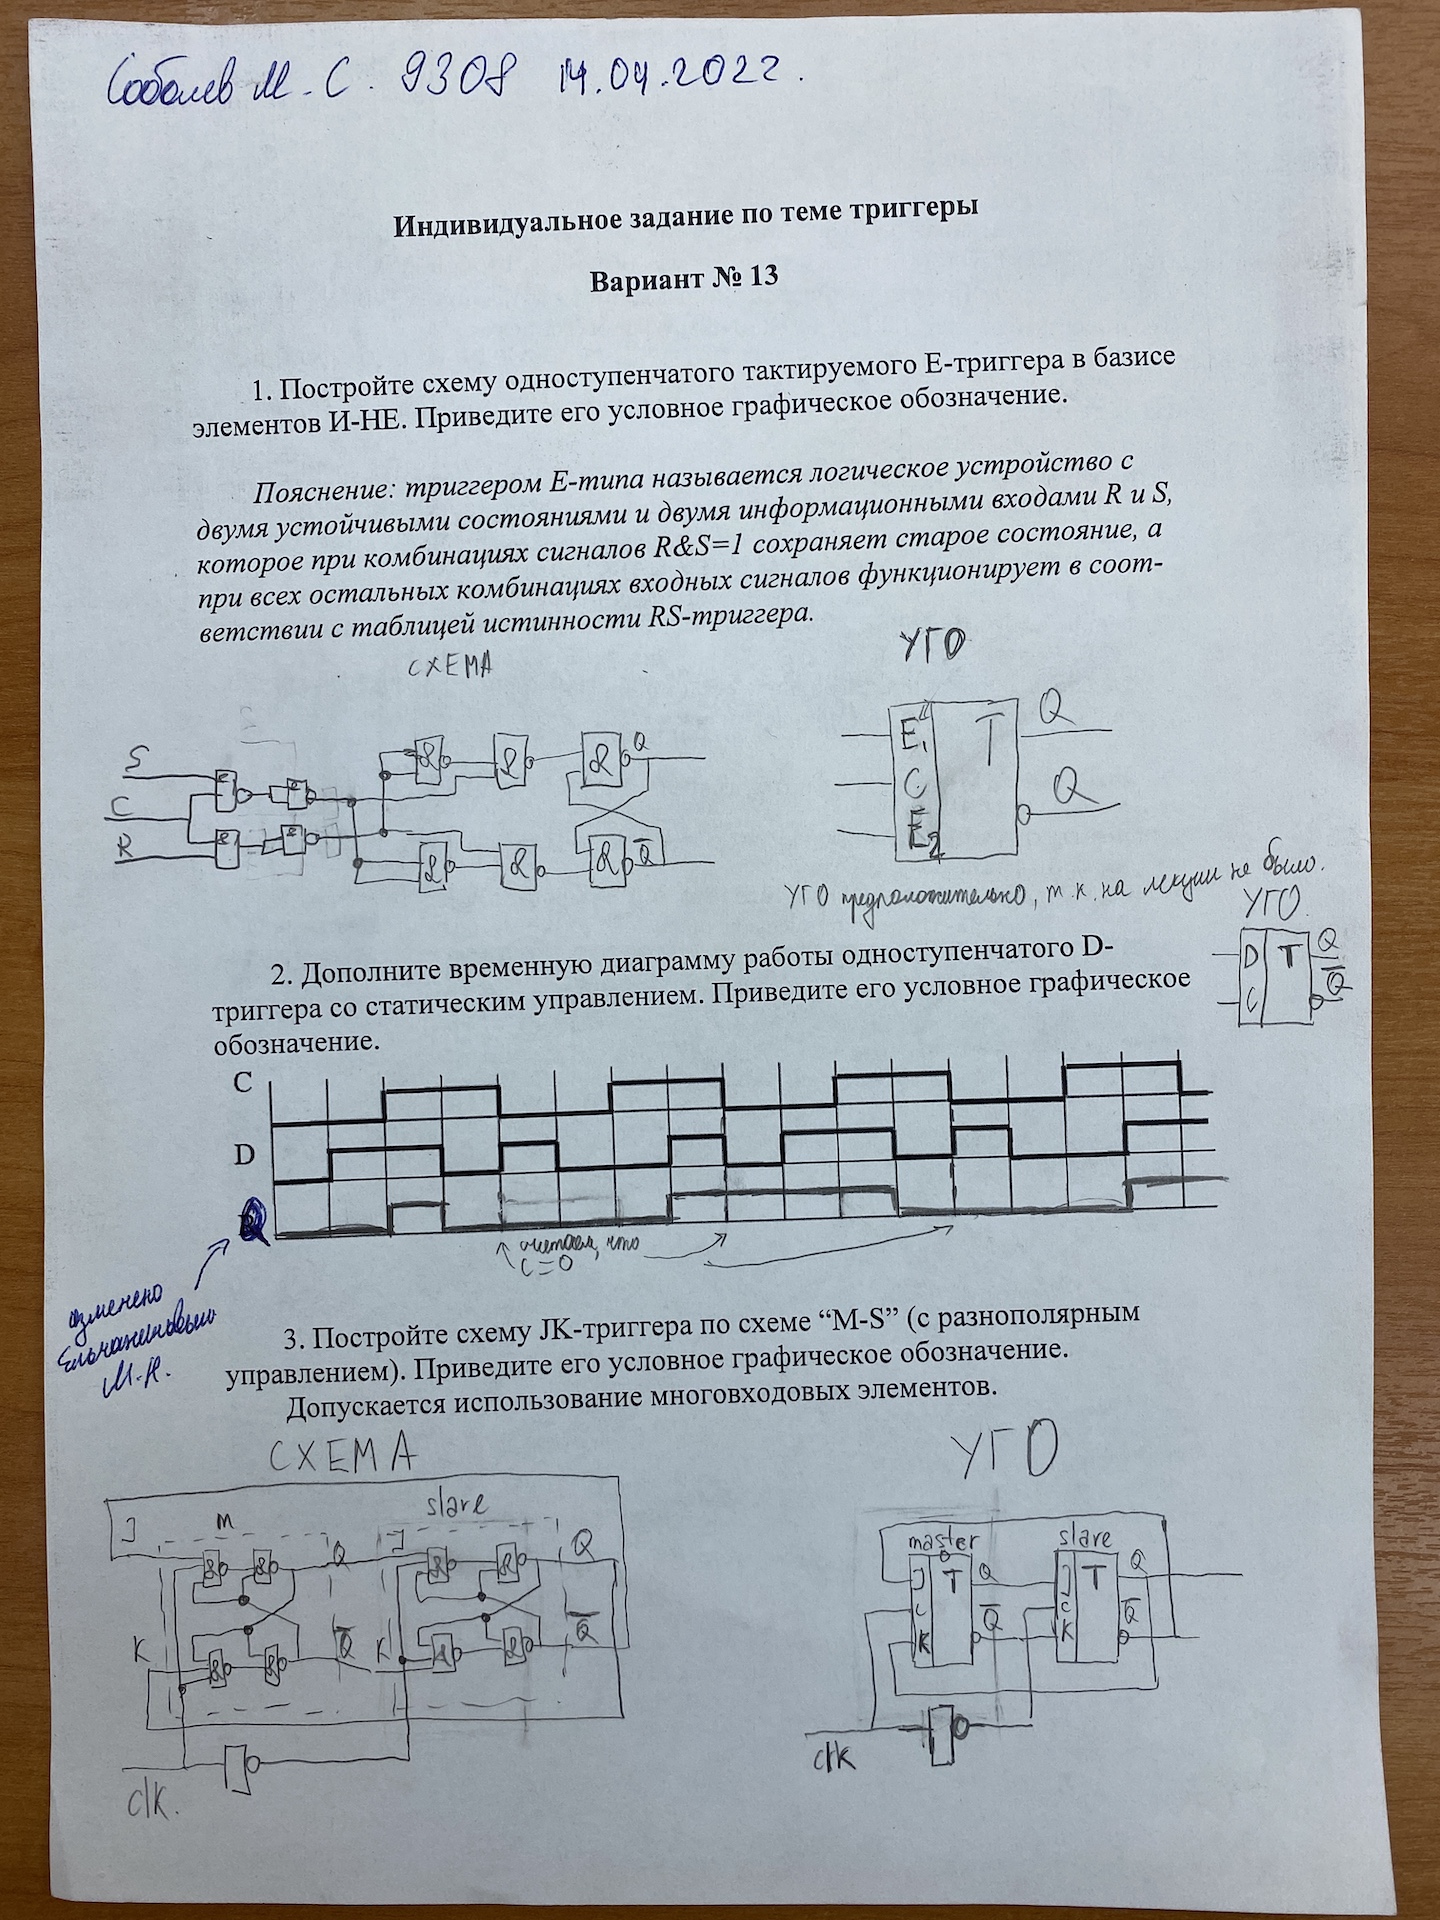 Соболев М.С. 9308 14.04.2022.
Индивидуальное задание по теме триггеры
Вариант № 13
1. Постройте схему одноступенчатого тактируемого Е-триггера в базисе
элементов И-НЕ. Приведите его условное графическое обозначение.
Пояснение: триггером Е-типа называется логическое устройство с
двумя устойчивыми состояниями и двумя информационными входами R и S,
которое при комбинациях сигналов R&S=1 сохраняет старое состояние, а
при всех остальных комбинациях входных сигналов функционирует в соот-
ветствии с таблицей истинности RS-триггера.
СХЕМА
УГО
S
C
R
&
&
&
&
&
&
&
&
&
&
Q
Q̅
E1
C
E2
T
Q
Q
УГО предположительно, т.к. на лекции не было.
УГО
D
C
T
Q
Q̅
2. Дополните временную диаграмму работы одноступенчатого D-
триггера со статическим управлением. Приведите его условное графическое
обозначение.
C
D
Q
считаем, что
C=0
изменено
М.Н.
3. Постройте схему JK-триггера по схеме “M-S” (с разнополярным
управлением). Приведите его условное графическое обозначение.
Допускается использование многовходовых элементов.
СХЕМА
УГО
J
M
slave
J
Q
Q
K
Q̅
K
Q̅
&
&
&
&
&
&
&
&
clk.
master
slave
J
C
K
T
Q
Q̅
J
C
K
T
Q
Q̅
clk